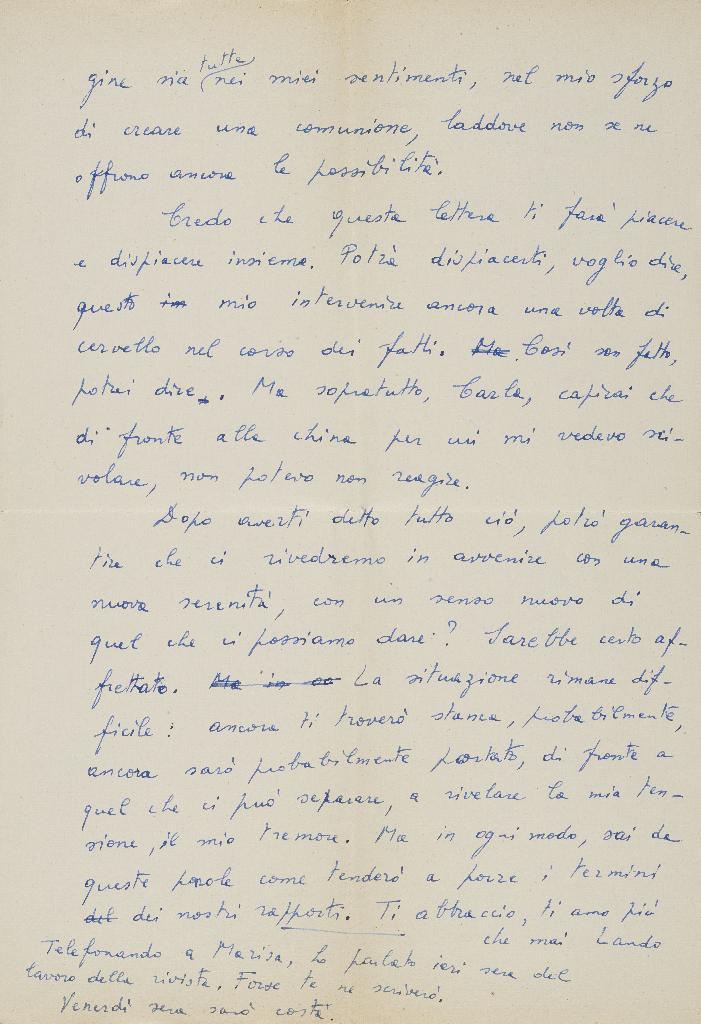 tutta
gine sia nei miei sentimenti, nel mio sforzo
di creare una comunione, laddove non se ne
offrono ancora le possibilità.
Credo che questa lettera ti farà piacere
e dispiacere insieme. Potrà dispiacerti, voglio dire,
questo im mio intervenire ancora una volta di
cervello nel corso dei fatti. Ma Così son fatto,
potrei dire. Ma sopratutto, Carla, capirai che
di fronte alla china per cui mi vedevo sci-
volare, non potevo non reagire.
Dopo averti detto tutto ciò, potrò garan-
tire che ci rivedremo in avvenire con una
nuova serenità, con un senso nuovo di
quel che ci possiamo dare? Sarebbe certo af-
frettato. Ma in La situazione rimane dif-
ficile: ancora ti troverò stanca, probabilmente,
ancora sarò probabilmente portato, di fronte a
quel che ci può separare, a rivelare la mia ten-
sione, il mio tremore. Ma in ogni modo, sai da
queste parole come tenderò a porre i termini
del dei nostri rapporti. Ti abbraccio, ti amo più
che mai Lando
Telefonando a Marisa, ho parlato ieri sera del
lavoro della rivista. Forse te ne scriverò.
Venerdì sera sarò costà.